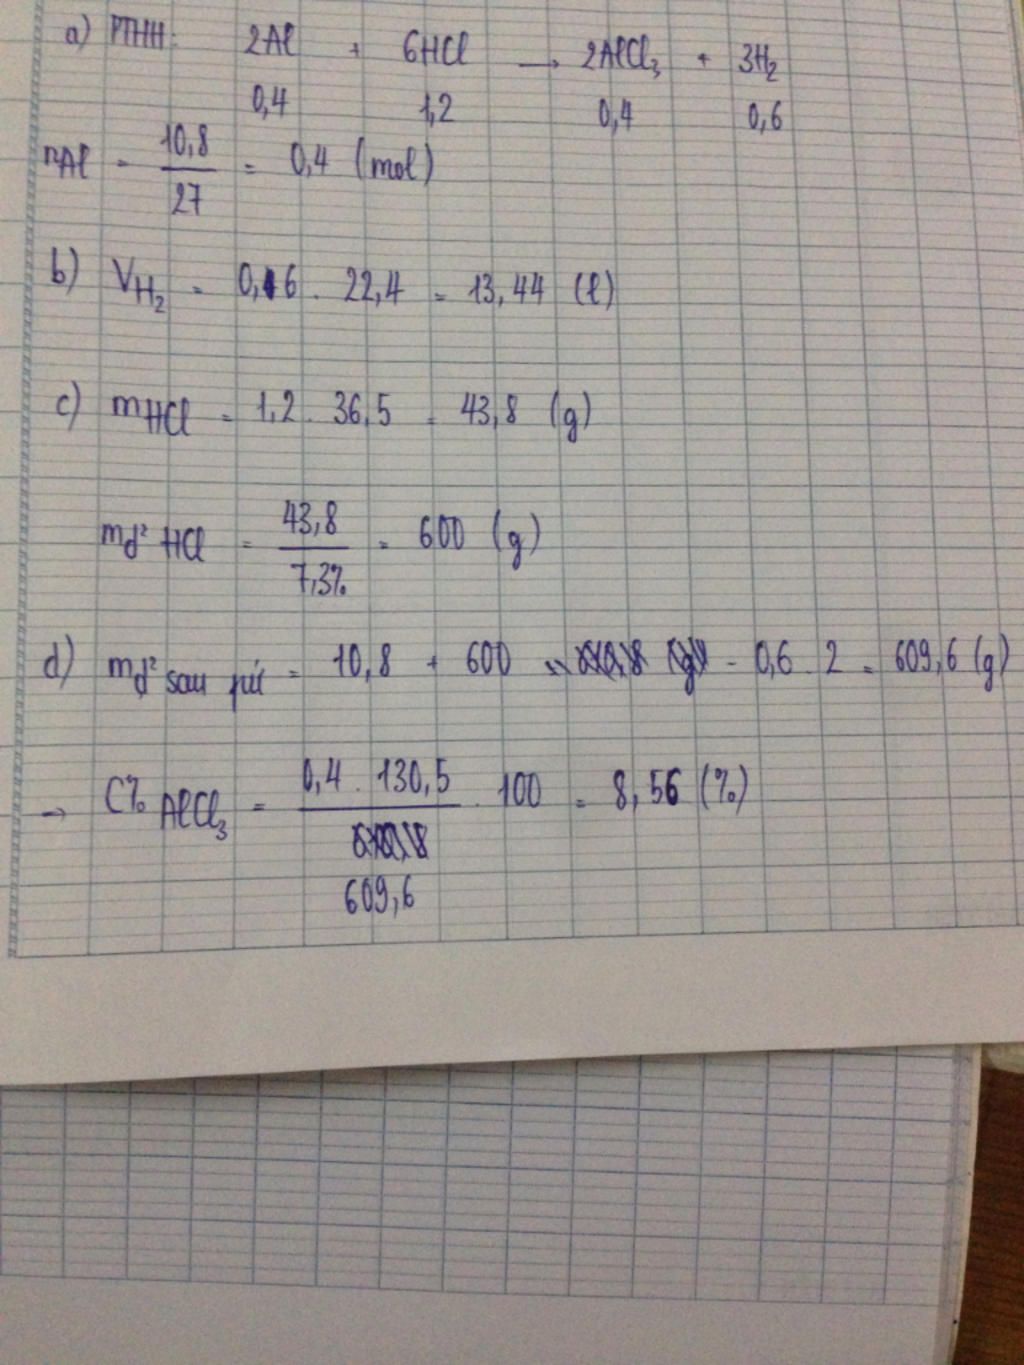 a) PTHH: 2Al + 6HCl → 2AlCl₃ + 3H₂
0,4 1,2 0,4 0,6
nAl = 10,8 / 27 = 0,4 (mol)
b) V H₂ = 0,6 . 22,4 = 13,44 (l)
c) mHCl = 1,2 . 36,5 = 43,8 (g)
md² HCl = 43,8 / 7,3% = 600 (g)
d) md² sau pứ = 10,8 + 600 - 0,6 . 2 = 609,6 (g)
→ C% AlCl₃ = 0,4 . 130,5 / 609,6 . 100 = 8,56 (%)